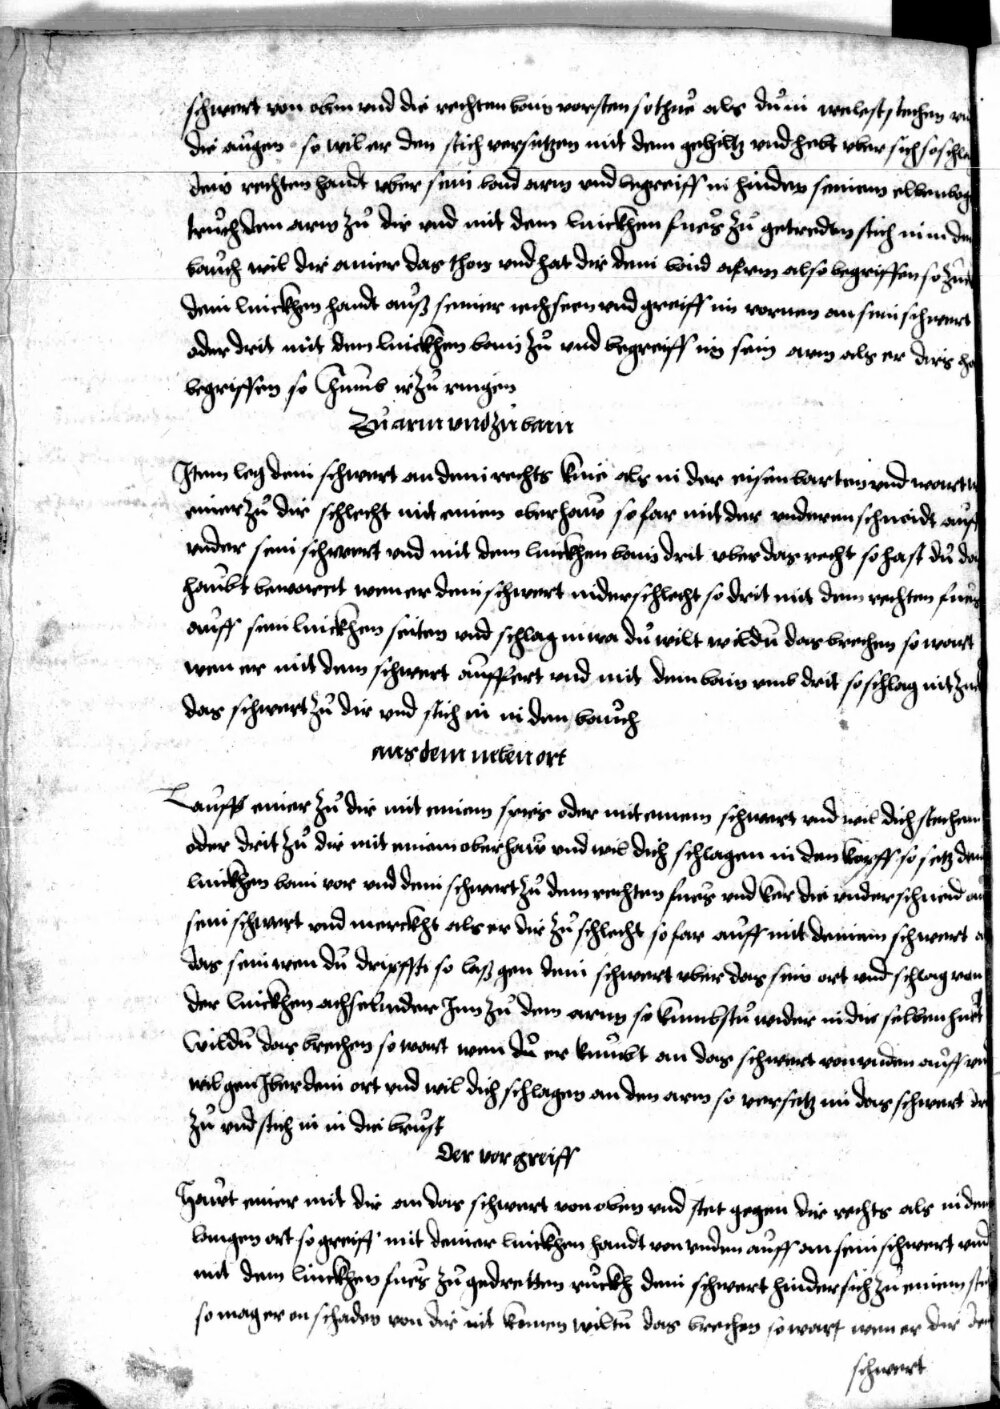 schwert von oben vnd die rechten bain vorsten so thue als du in welest stechen vn
die augen so wil er den stich versetzen mit dem gehiltz vnd hebt vber sich so schla
dein rechten handt vber sein baid arm vnd begreiff in hinder seinem elbenbog
truckh den arm zu dir vnd mit dem linckhen fues zu getredten stich in in den
bauch wil dir ainer das thon vnd hat dir dein baid arm also begriffen so
dein linckhen handt auß seiner vnd greiff im vornen an sein schwert
oder drit mit dem linckhen bain zu vnd begreiff im sein arm als er dirs ha
begriffen so kumb ir zu ringen
Zu arm vnd zu bain
Item leg dein schwert an dein rechts knie als in der eisenbarten vnd wart w
einer zu dir schlecht mit einem oberhaw so far mit der vnderen schneidt auff
vnder sein schwert vnd mit dem linckhen bain drit vber das recht so hast du da
haubt bewareit wen er dein schwert niderschlecht so drit mit dem rechten fues
auff sein linckhen seiten vnd schlag in wa du wilt wildu das brechen so wart
wen er mit dem schwert auffert vnd mit dem bain vmb drit so schlag nit
das schwert zu dir vnd stich in in den bauch
aus dem neben ort
Lauff einer zu dir mit einem spies oder mit einem schwert vnd wil dich stechen
oder drit zu dir mit einem oberhaw vnd wil dich schlagen in den kopff so setz den
linckhen bain vor vnd dein schwert zu dem rechten fues vnd ker die vnder schneid au
sein schwert vnd merckht als er dir zu schlecht so far auff mit deinem schwert a
das sein wen du driffst so laß gen dein schwert vber das sein ort vnd schlag von
der linckhen achsel nider Im zu dem arm so kumbstu wider in die selben huet
wildu das brechen so wart wen du er knubt an das schwert von vnden auff vn
wil gen yber dein ort vnd wil dich schlagen an den arm so versetz im das schwert dr
zu vnd stich in in die brust
Der vorgreiff
Hawt einer mit dir an das schwert von oben vnd stet gegen dir rechts als in dem
langen ort so greiff mit deiner linckhen handt von vnden auff an sein schwert vnd
mit dem linckhen fues zu gedretten ruckh dein schwert hinder sich zu einem sti
so mag er on schaden von dir nit komen wiltu das brechen so wart wen er dir den
schwert